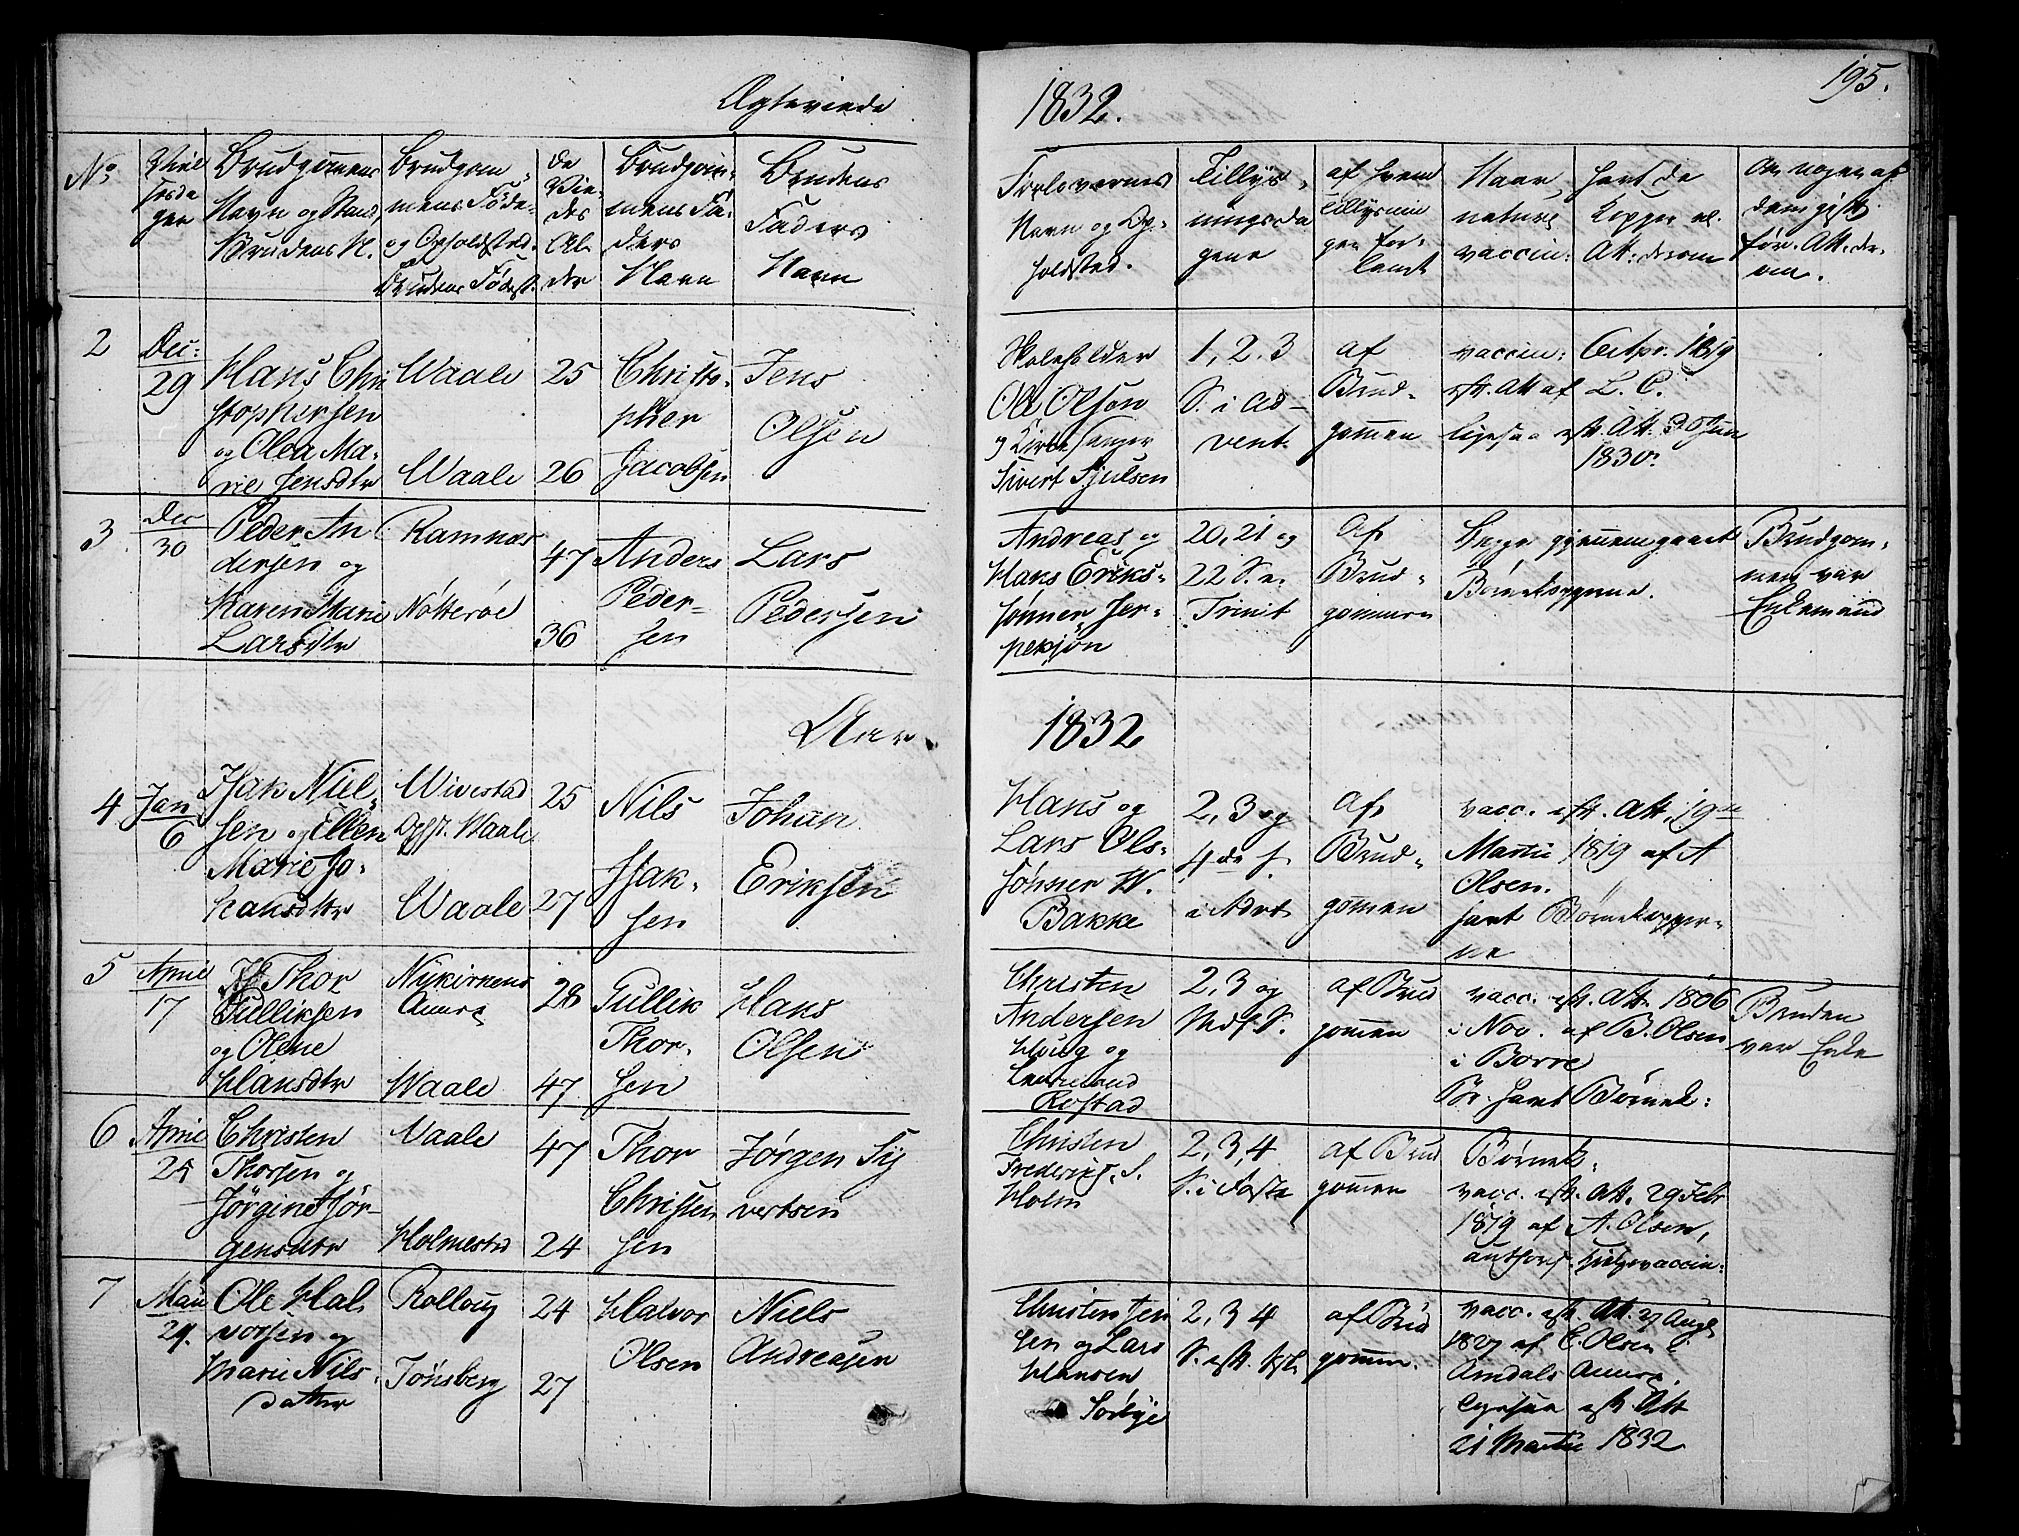 Ægteviede
1832.
195.
No
Viel
sesda
gen
Brudgommens
Navn og Stand
Brudens N.
Brudgom-
mens Føde-
og Opholdsted.
Brudens Fødest.
De
Vie-
des
Al-
der
Brudgom-
mens Fa-
ders
Navn
Brudens
Faders
Navn
Forlovernes
Navn og Op-
holdsted.
Tillys-
ningsda
gene
af hvem
tillysnin
gen for-
langt
Naar
naturl.
vaccin:
havt de
Kopper el.
Att: derom
Om nogen af
dem gift
før. Att. der-
om.
2
Dec:
29
Hans Chri
stophersen
og Olea Ma-
rie Jensdtr
Waale
Waale
25
26
Christo-
pher
Jacobsen
Jens
Olsen
Skoleholder
Ole Olsen
og Kirkesanger
Sivert Sjulsen
1, 2, 3
S. i Ad-
vent.
af
Brud-
gommen
vaccin:
eft. Att af
ligesaa
1819
L. C.
eft. Att. 30 Jun
1830.
3.
Dec
30
Peder An
dersen og
Karen Marie
Larsdtr
Ramnæs
Nøtterøe
47
36
Anders
Peder-
sen
Lars
Pedersen
Andreas og
Hans Eriks-
sønner Jer-
pekjøn
20, 21 og
22 S. e.
Trinit
Af
Brud-
gommen
Begge gjennemgaaet
Børnekopperne.
Brudgom-
men var
Enkemand
Aar
1832
4.
Jan
6
Isak Niel-
sen og Ellen
Marie Jo-
hansdtr
Wivestad
Opst. Waale
Waale
25
27
Nils
Isak-
sen
Johan
Eriksen
Hans og
Lars Ols-
sønner W.
Bakke
2, 3 og
4de S.
i Advt
Af
Brud-
gommen
vacc. eft. Att. 19de
Martii 1819 af A
Olsen.
havt Børnekopper-
ne
5
April
17
Thor
Gulliksen
og Olene
Hansdtr
Nykirkens
Annex
Waale
28
47
Gullik
Thor-
sen
Hans
Olsen
Christen
Andersen
Houg og
Rostad
2, 3 og
af Brud
gommen
vacc. eft. Att. 1806
i Nov. af B. Olsen
i Borre
havt Børnek:
Bruden
var Enke
6.
April
25
Christen
Thorsen og
Jørgine Jør-
gensdtr
Vaale
Holmestrd
47
24
Thor
Christen
sen
Jørgen Sy
vertsen
Christen
Frederiks. S.
Holm
2, 3, 4
S. i Faste
af Brud
gommen
Børnek:
vacc. eft. Att. 29 Febr
1819 af A. Olsen,
7
Maii
29.
Ole Hal
vorsen og
Marie Nils-
datter
Rolloug
Tønsberg
24
27
Halvor
Olsen
Niels
Andreasen
Christen Jen
sen og Lars
Hansen
Sørbye
2, 3, 4
S. eft.
af Brud
gommen.
vacc. eft. Att. 27 Aug
1827 af E. Olsen i
Omdals Annex.
Ligesaa eft. Att
21 Martii 1832